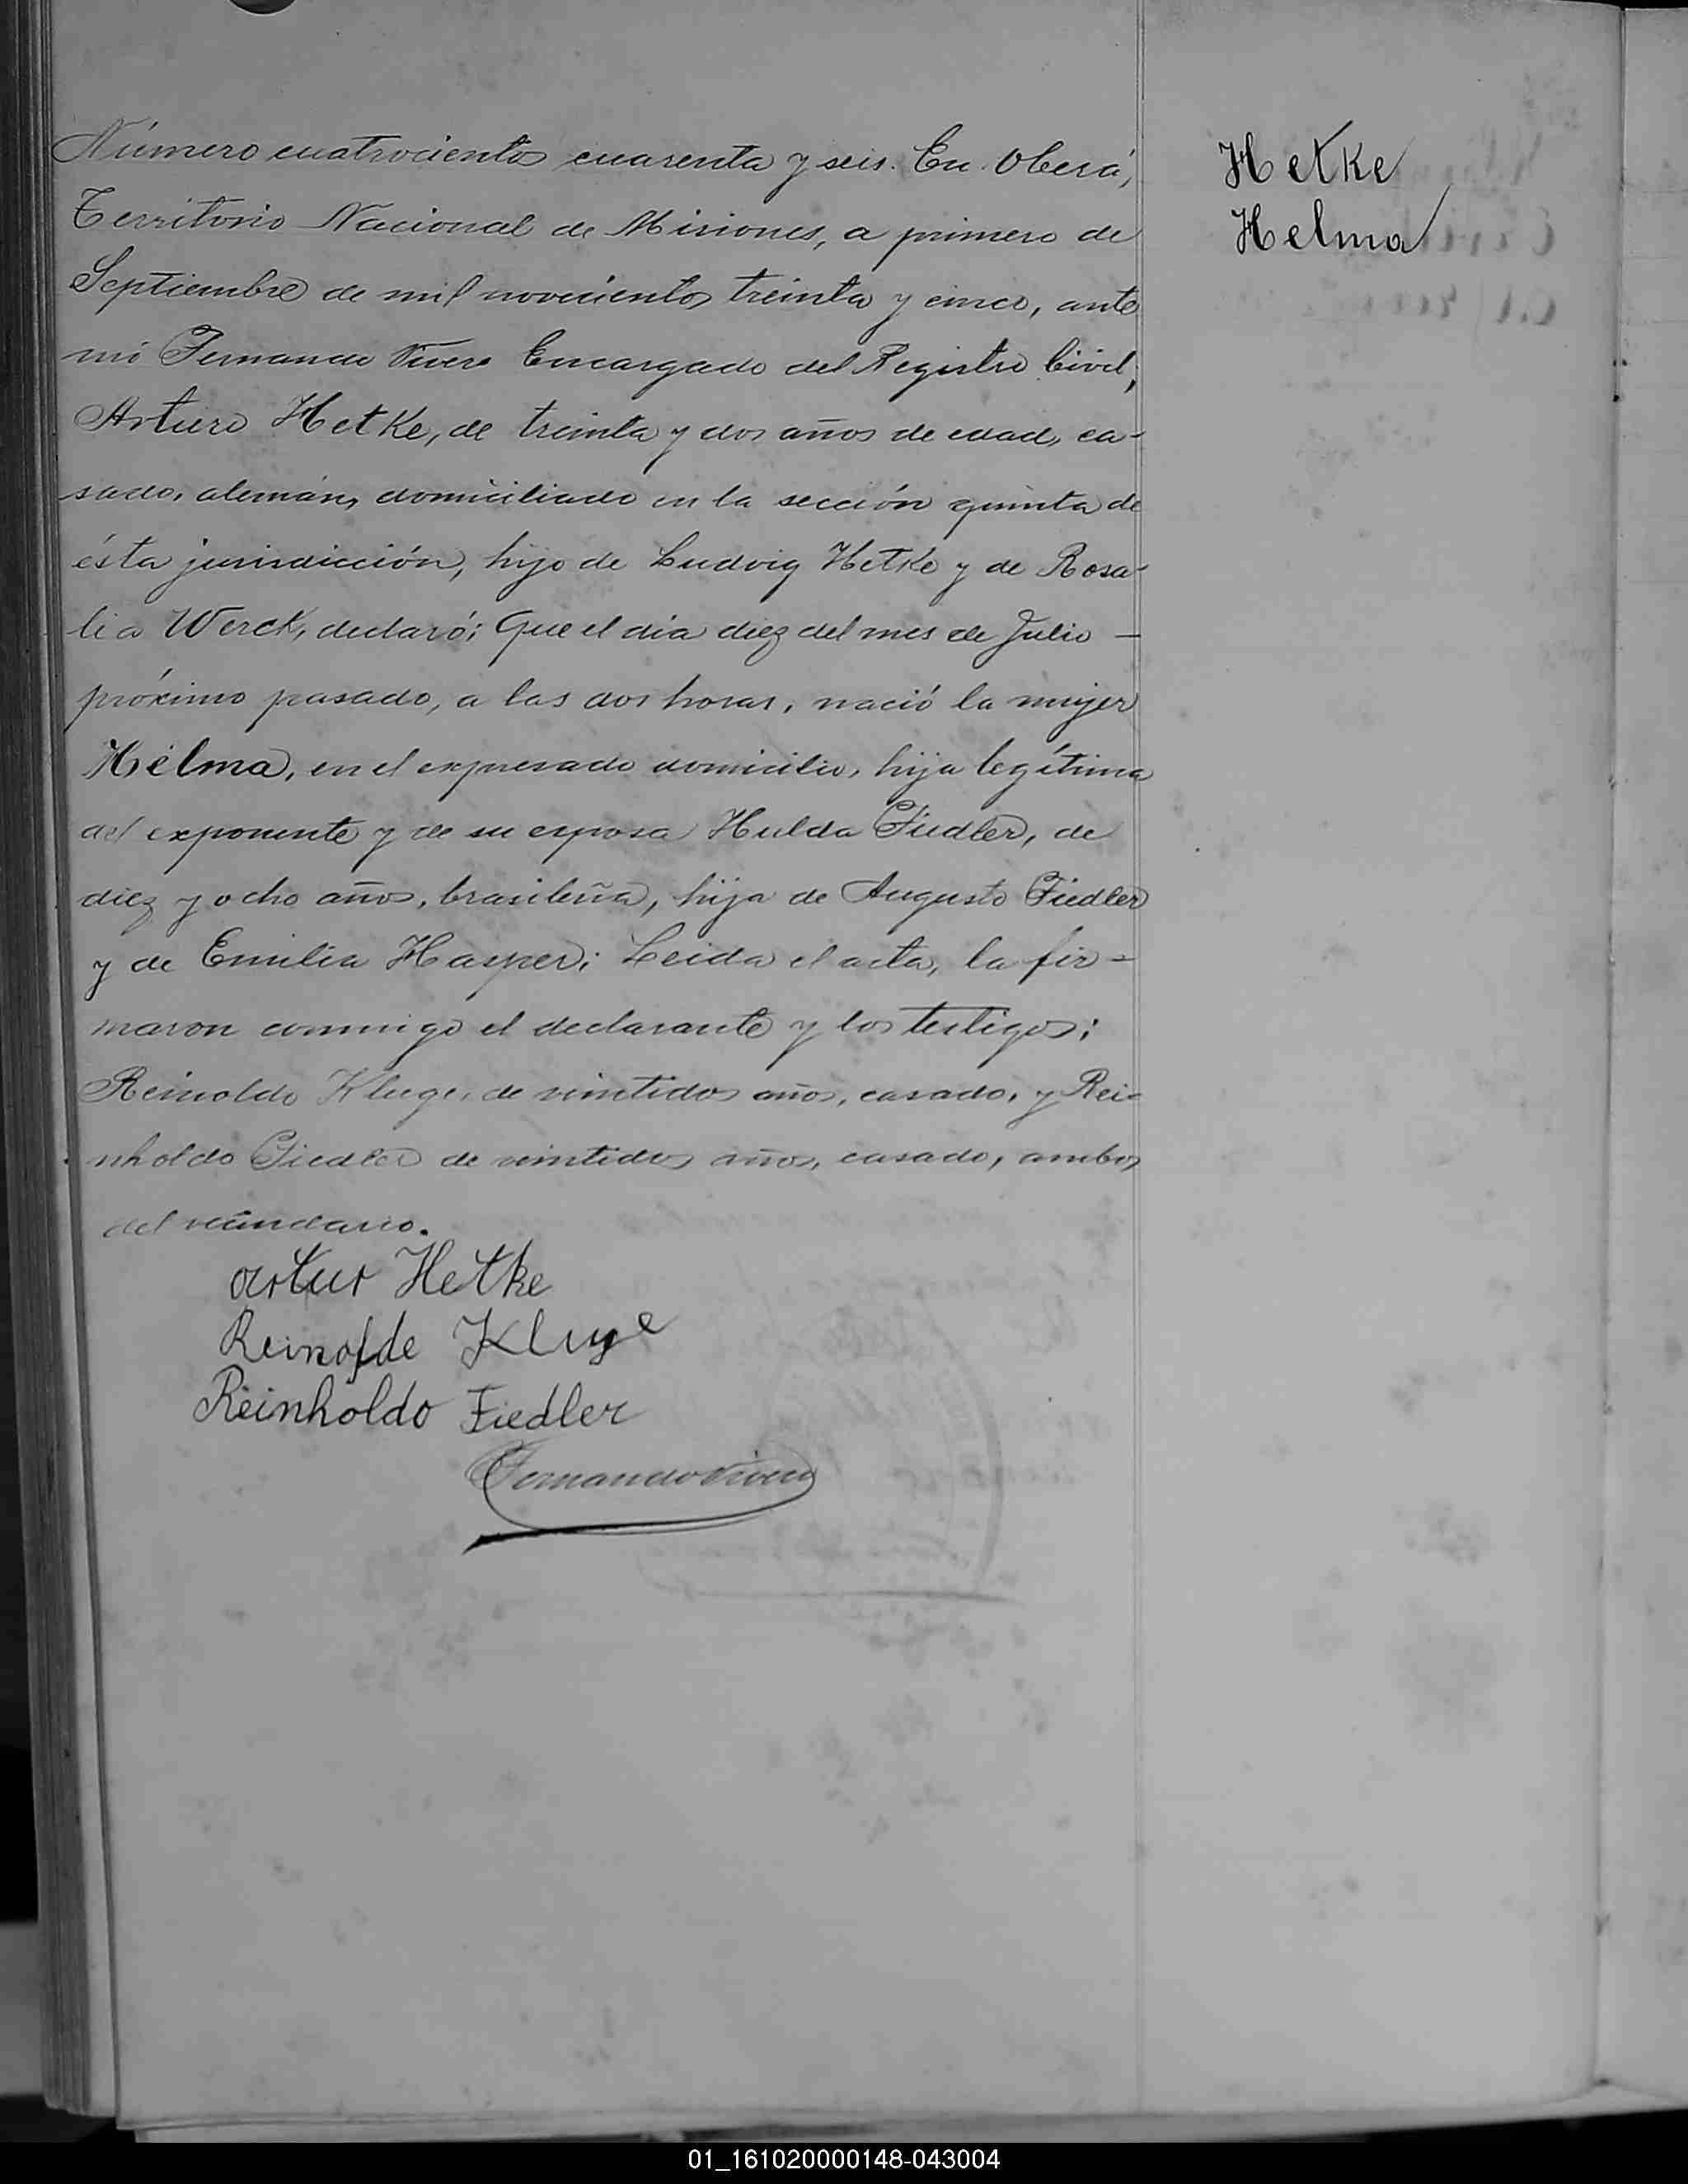 Número cuatrocientos cuarenta y seis. En Oberá,
Territorio Nacional de Misiones, a primero de
Septiembre de mil novecientos treinta y cinco, ante
mi Fernando Vivero Encargado del Registro Civil,
Arturo Hetke, de treinta y dos años de edad, ca-
sado, alemán, domiciliado en la sección quinta de
ésta jurisdicción, hijo de Ludvig Hetke y de Rosa-
lia Werck, declaró; Que el día diez del mes de Julio —
próximo pasado, a las dos horas, nació la mujer
Helma, en el expresado domicilio, hija legítima
del exponente y de su esposa Hulda Fiedler, de
diez y ocho años, brasileña, hija de Augusto Fiedler
y de Emilia Hasper; Leida el acta, la fir-
maron conmigo el declarante y los testigos;
Reinoldo Kluge, de veintidos años, casado, y Rei-
nholdo Fiedler de veintidos años, casado, ambos
del vecindario.
Artur Hetke
Reinolde Kluge
Reinholdo Fiedler
Fernando Vivero
Hetke
Helma
01_161020000148-043004